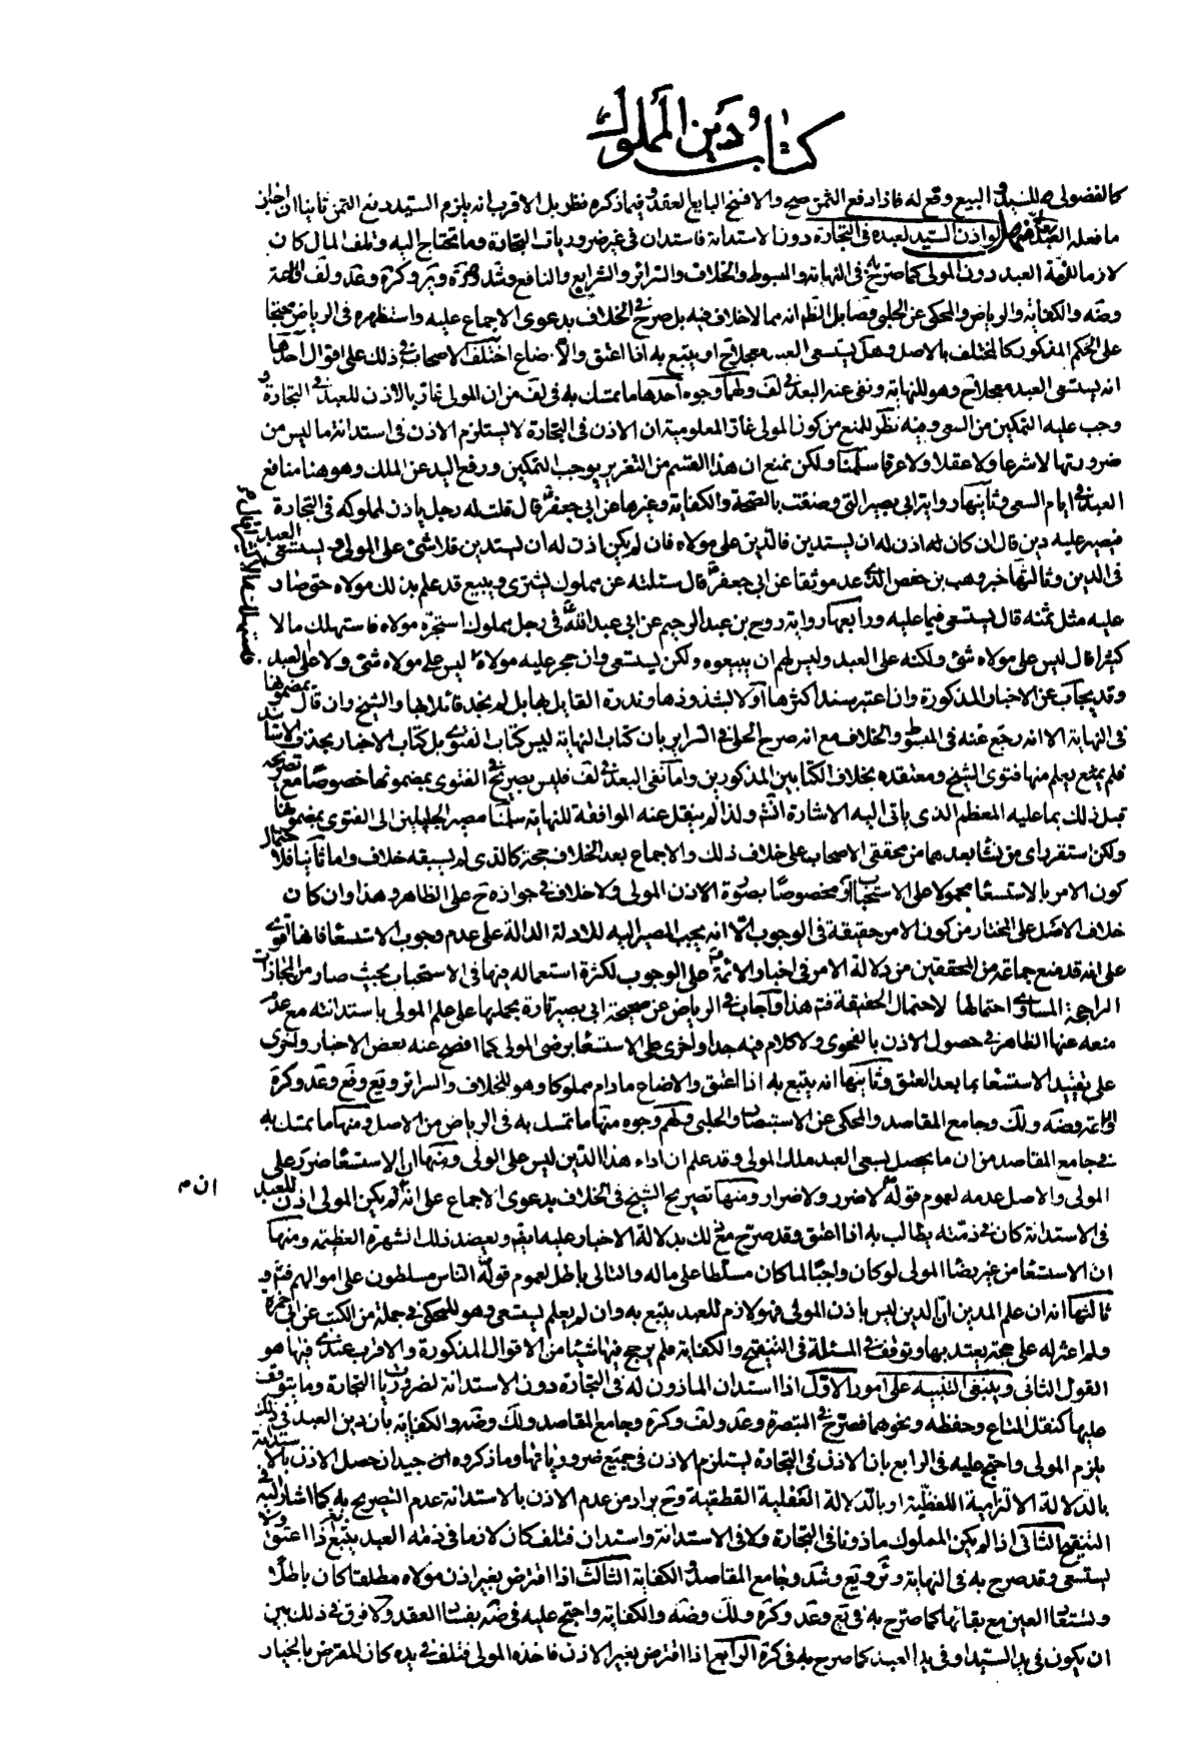 كتاب دين المملوك
كالفضولى للسيد و البيع وقع له فاذا دفع الثمن صح والا فسخ البايع العقد وفيما ذكره نظر بل الاقرب انه يلزم السيد دفع الثمن ثانيا ان اجاز
ما فعله العبد لو اذن السيد لعبده فى التجارة دون الاستدانة فاستدان فى غير ضروريات التجارة وما يحتاج اليه وتلف المال كان
لازما لذمة العبد دون المولى كما صرح به فى النهاية والمبسوط والخلاف والسرائر والشرايع والنافع وشد وكرة وعد ولف
وضه والكفاية والرياض والمحكى عن الحلبى بل الظ انه مما لاخلاف فيه بل صرح فى الخلاف بدعوى الاجماع عليه واستظهره فى الرياض محتجا
على الحكم المذكور كالمختلف بالاصل وهل يستسعى العبد معجلا ح او يتبع به اذا اعتق والا ضاع اختلف الاصحاب فى ذلك على اقوال احدها
انه يستسعى العبد معجلا ح وهو للنهاية ونفى عنه البعد فى لف ولهما وجوه احدها ما تمسك به فى لف من ان المولى غار بالاذن للعبد فى التجارة و
وجب عليه التمكين من السعى وفيه نظر للمنع من كون المولى غارا لمعلومية ان الاذن فى التجارة لا يستلزم الاذن فى استدانة ما ليس من
ضرورتها لا شرعا ولا عقلا ولا عرفا سلمنا ولكن نمنع ان هذا القسم من التغرير يوجب التمكين ورفع اليد عن الملك وهو هنا منافع
العبد فى ايام السعى وثانيها رواية ابى بصير التى وصفت بالصحة والكفاية وغيرها عن ابى جعفر قال قلت له رجل ياذن لمملوكه فى التجارة
فيصير عليه دين قال ان كان اذن له ان يستدين فالدين على مولاه فان لم يكن اذن له ان يستدين فلا شئ على المولى ويستسعى العبد
فى الدين وثالثها خبر وهب بن حفص الذى عد موثقا عن ابى جعفر قال سئلته عن مملوك يشترى ويبيع قد علم بذلك مولاه حتى صار
عليه مثل ثمنه قال يستسعى فيما عليه ورابعها رواية روح بن عبد الرحيم عن ابى عبد الله فى رجل مملوك استتجره مولاه فاستهلك مالا
كثيرا قال ليس على مولاه شئ ولكنه على العبد وليس لهم ان يبيعوه ولكن يستسعى وان حجر عليه مولاه ليس على مولاه شئ ولا على العبد
وقد يجاب عن الاخبار المذكورة وان اعتبر سند اكثرها اولا بشذوذها وندرة القايل بها بل لم نجد قائلا بها والشيخ وان قال بمضمونها
فى النهاية الا انه رجع عنه فى المبسوط والخلاف مع انه صرح الحلى فى السرائر بان كتاب النهاية ليس كتاب الفتوى بل كتاب الاخبار بحذف الاسناد
فلم يعلم منها فتوى الشيخ ومعتقده بخلاف الكتابين المذكورين واما نفى البعد فى لف فليس بصريح فى الفتوى بمضمونها خصوصا مع تصريحه
قبل ذلك بما عليه المعظم الذى ياتى اليه الاشارة انش ولذا لم ينقل عنه الموافقة للنهاية سلمنا مصير الجليلين الى الفتوى بمضمونها
ولكن استقر راى من نشا بعدهما من محققى الاصحاب على خلاف ذلك والاجماع بعد الخلاف حجة كالذى لم يسبقه خلاف واما ثانيا فلاحتمال
كون الامر بالاستسعا محمولا على الاستحباب او مخصوصا بصورة الاذن المولى ولا خلاف فى جوازه ح على الظاهر وهذا وان كان
خلاف الاصل على المختار من كون الامر حقيقة فى الوجوب الا انه يجب المصير اليه للادلة الدالة على عدم وجوب الاستسعا فانها اقوى
على انه قد منع جماعة من المحققين من دلالة الامر فى اخبار الائمة على الوجوب لكثرة استعماله فيها فى الاستحباب بحيث صار من المجازات
الراجحة المساوى احتمالها لاحتمال الحقيقة فتم هذا واجاب فى الرياض عن صحيحة ابى بصير تارة بحملها على علم المولى باستدانته مع عدم
منعه عنها الظاهر فى حصول الاذن بالفحوى ولا كلام فيه جدا واخرى على الاستسعا برضى المولى كما افصح عنه بعض الاخبار واخرى
على تقييد الاستسعا بما بعد العتق وثانيها انه يتبع به اذا اعتق والا ضاع مادام مملوكا وهو للخلاف والسرائر ويع وفع وعد وكرة
وضه ولك وجامع المقاصد والمحكى عن الاستبصار والحلبى ولهم وجوه منها ما تمسك به فى الرياض من الاصل ومنها ما تمسك به
فى جامع المقاصد من ان ما يحصل بسعى العبد ملك المولى وقد علم ان اداء هذا الدين ليس على المولى ومنها ان الاستسعا ضرر على
المولى والاصل عدمه لعموم قوله لا ضرر ولا ضرار ومنها تصريح الشيخ فى الخلاف بدعوى الاجماع على انه لم يكن المولى اذن للعبد
فى الاستدانة كان فى ذمته يطالب به اذا اعتق وقد صرح مع ذلك بدلالة الاخبار عليه ايضا ويعضد ذلك الشهرة العظيمة ومنها
ان الاستسعا من غير رضا المولى لو كان واجبا لما كان مسلطا على ماله والتالى باطل لعموم قوله الناس مسلطون على اموالهم فتم و
ثالثها انه ان علم المدين ان الدين ليس باذن المولى فهو لازم للعبد يتبع به وان لم يعلم يستسعى وهو للمحكى فى جملة من الكتب عن ابى حمزة
ولم اعثر له على حجة يعتد بها وتوقف فى المسئلة فى التنقيح والكفاية فلم يرجح فيها شيئا من الاقوال المذكورة والاقرب عندى فيها هو
القول الثانى وينبغى التنبيه على امور الاول اذا استدان الماذون له فى التجارة دون الاستدانة لضروريات التجارة وما يتوقف
عليها كنقل المتاع وحفظه ونحوهما فصرح فى التبصرة وعد ولف وكرة وجامع المقاصد ولك وضه والكفاية بان دين العبد فى ذلك
يلزم المولى واحتج عليه فى الرابع بان الاذن فى التجارة يستلزم الاذن فى جميع ضرورياتها وما ذكروه جيد ان حصل الاذن بالاستدانة
بالدلالة الالتزامية اللفظية او بالدلالة العقلية القطعية وح يراد من عدم الاذن بالاستدانة عدم التصريح به كما اشار اليه فى
التنقيح الثانى اذا لم يكن المملوك ماذونا فى التجارة ولا فى الاستدانة واستدان فتلف كان لازما فى ذمة العبد يتبع به اذا اعتق ولا
يستسعى وقد صرح به فى النهاية وئر ويع وشد وجامع المقاصد والكفاية الثالث اذا اقترض بغير اذن مولاه مطلقا كان باطلا
وتستعاد العين مع بقائها كما صرح به فى يع وعد وكرة ولك وضه والكفاية واحتج عليه فى ضه بفساد العقد ولا فرق فى ذلك بين
ان يكون فى يد السيد او فى يد العبد كما صرح به فى كرة الرابع اذا اقترض بغير الاذن فاخذه المولى فتلف فى يده كان المقرض بالخيار
ان م